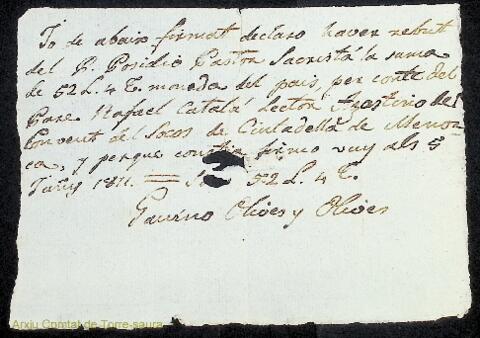 Jo de abaix firmat declaro haver rebut
del P. Posidio Pastor Sacristá la suma
de 52 L. 4 T. moneda del pais, per conte del
Pare Rafael Catalá Lector Agostino del
Convent del Socos de Ciutadella de Menor-
ca, y perque firmo vuy als 5
Juñy 1811. = 52 L. 4 T.
Olives y Olives
Arxiu Comtal de Torre-saura